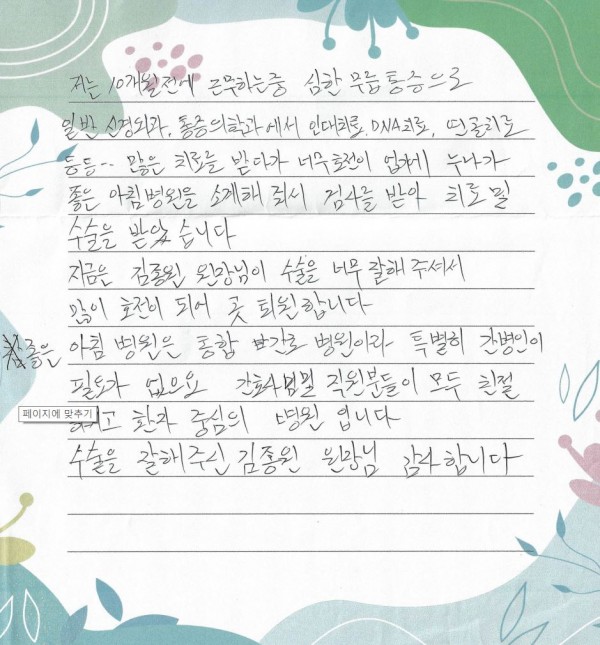 저는 10개월전에 근무하는중 심한 무릎통증으로
일반 신경외과, 통증의학과에서 인대치료, DNA치료, 연골치료
등등.. 많은 치료를 받다가 너무호전이 업기에 누나가
좋은 아침병원을 소개해 줘서 검사를 받아 치료 밑
수술을 받았습니다
지금은 김종원 원장님이 수술을 너무 잘해 주셔서
많이 호전이 되어 곳 퇴원합니다
참좋은 아침 병원은 통합 간호 병원이라 특별히 간병인이
필요가 없으요 간호사님밑 직원분들이 모두 친절
페이지에 맞추기
하고 환자 중심의 병원 입니다
수술을 잘해주신 김종원 원장님 감사합니다